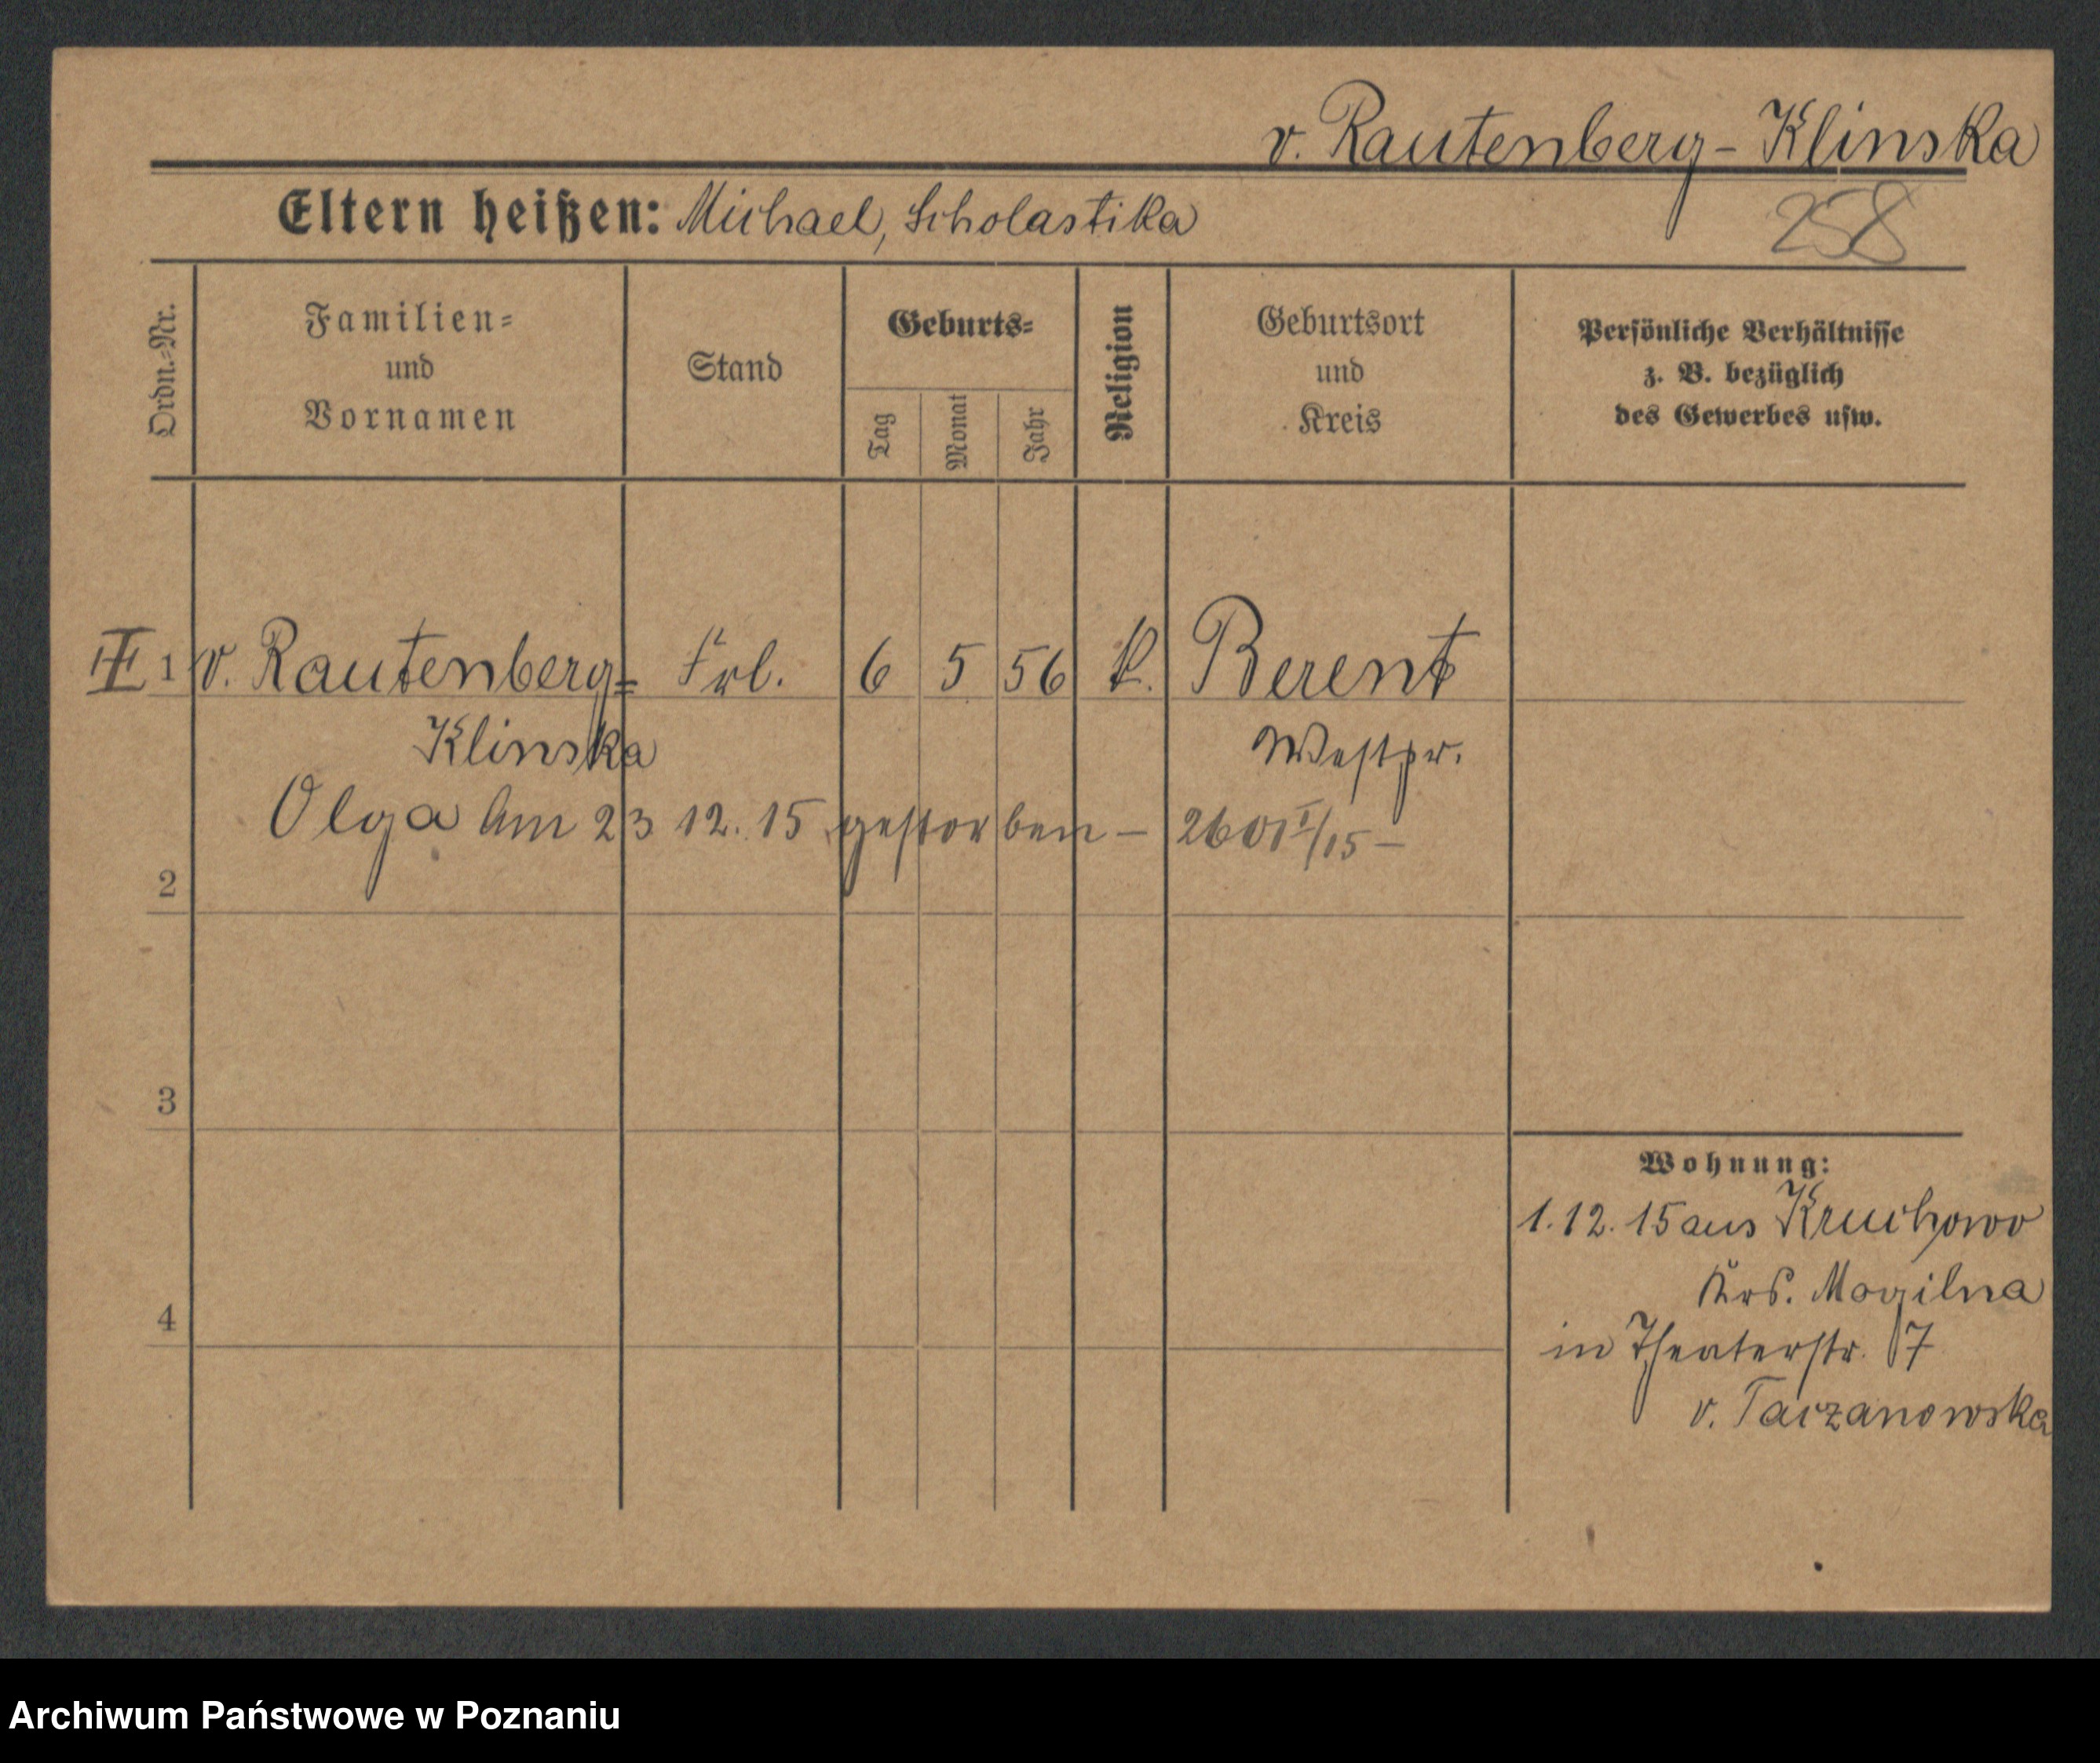 v. Rautenberg-Klinska
Eltern heißen: Michael, Scholastika
258
Ordn.-Nr.
Familien=
und
Vornamen
Stand
Geburts=
Tag
Monat
Jahr
Religion
Geburtsort
und
Kreis
Persönliche Verhältnisse
z. B. bezüglich
des Gewerbes usw.
1 v. Rautenberg= Frl. 6 5 56 k. Berent
Klinska Westpr.
Olga Am 23 12. 15 gestorben –
2
3
4
Wohnung:
1. 12. 15 aus Kruchowo
Krs. Mogilna
in Theaterstr. 7
v. Taczanowska
Archiwum Państwowe w Poznaniu